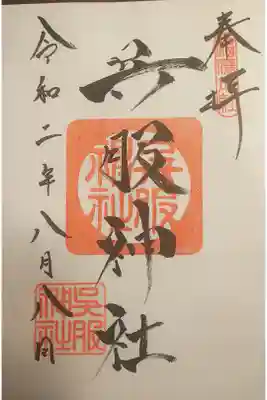 奉拝
呉服神社
呉服神社
令和二年八月八日
呉服神社